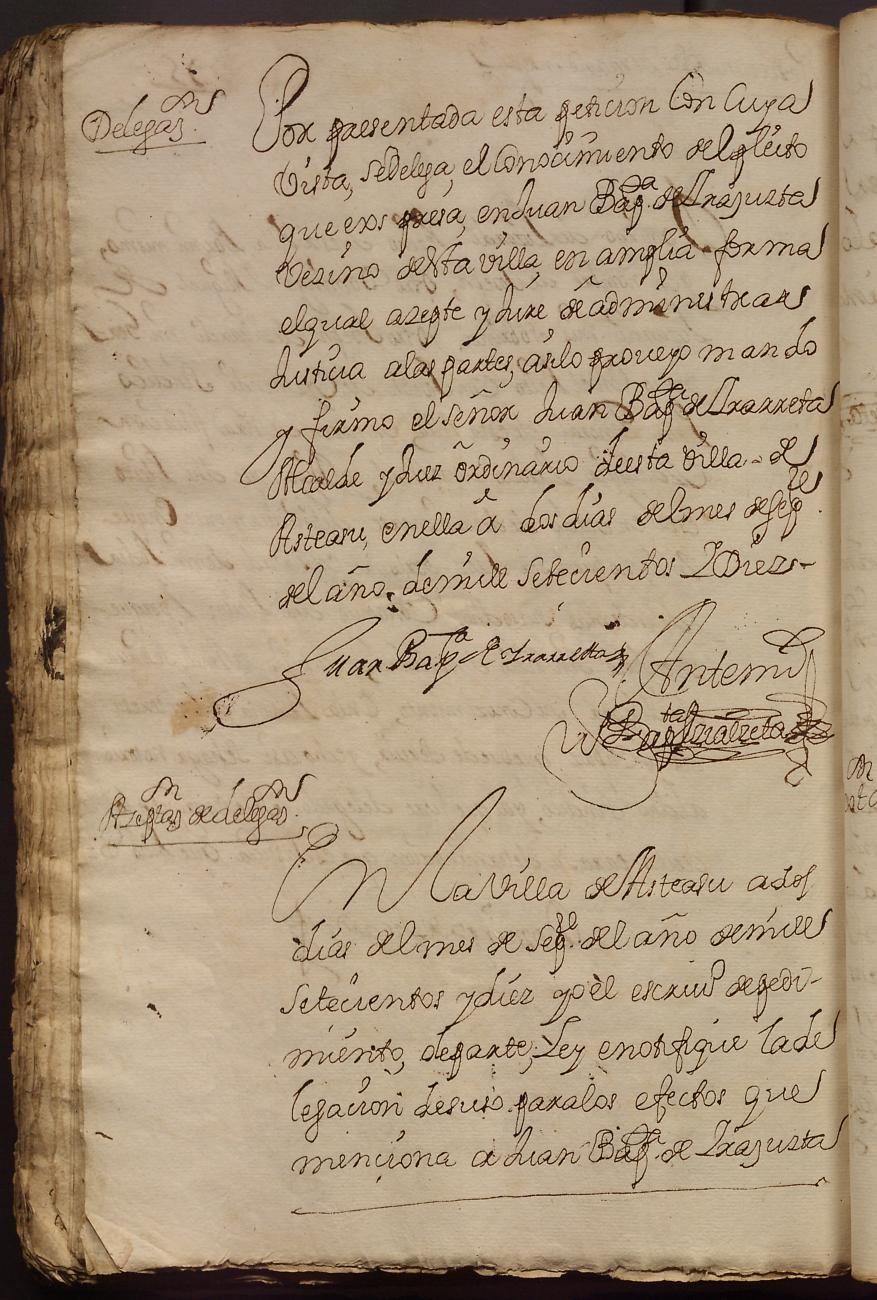 Delegaon
Por presentada esta peticion Con Cuya
Vista, sedelega, el Conocimiento del pleito
que exspresa, en Juan Bapta. de Irazuzta
Vezino desta villa, en amplia forma
el qual azepte y Jure de administrar
Justicia alas partes, asilo proveyo mando
y firmo el señor Juan Bapta de Yrarreta
Alcalde y Juez ordinario desta villa de
Asteasu, en ella â dos dias del mes de sepre.
del año, de mill setecientos Y Diez-
Juan Bapta de Yrarreta
Antemi
Azeptaon de delegaon
En La Villa de Asteasu a dos
dias del mes de sepre. del año de mill
setecientos y diez yo el escriuo de pedi-
miento, de parte, Ley e notifique la de
legacion de suso para los efectos que
menciona a Juan Bapta. de Irazuzta